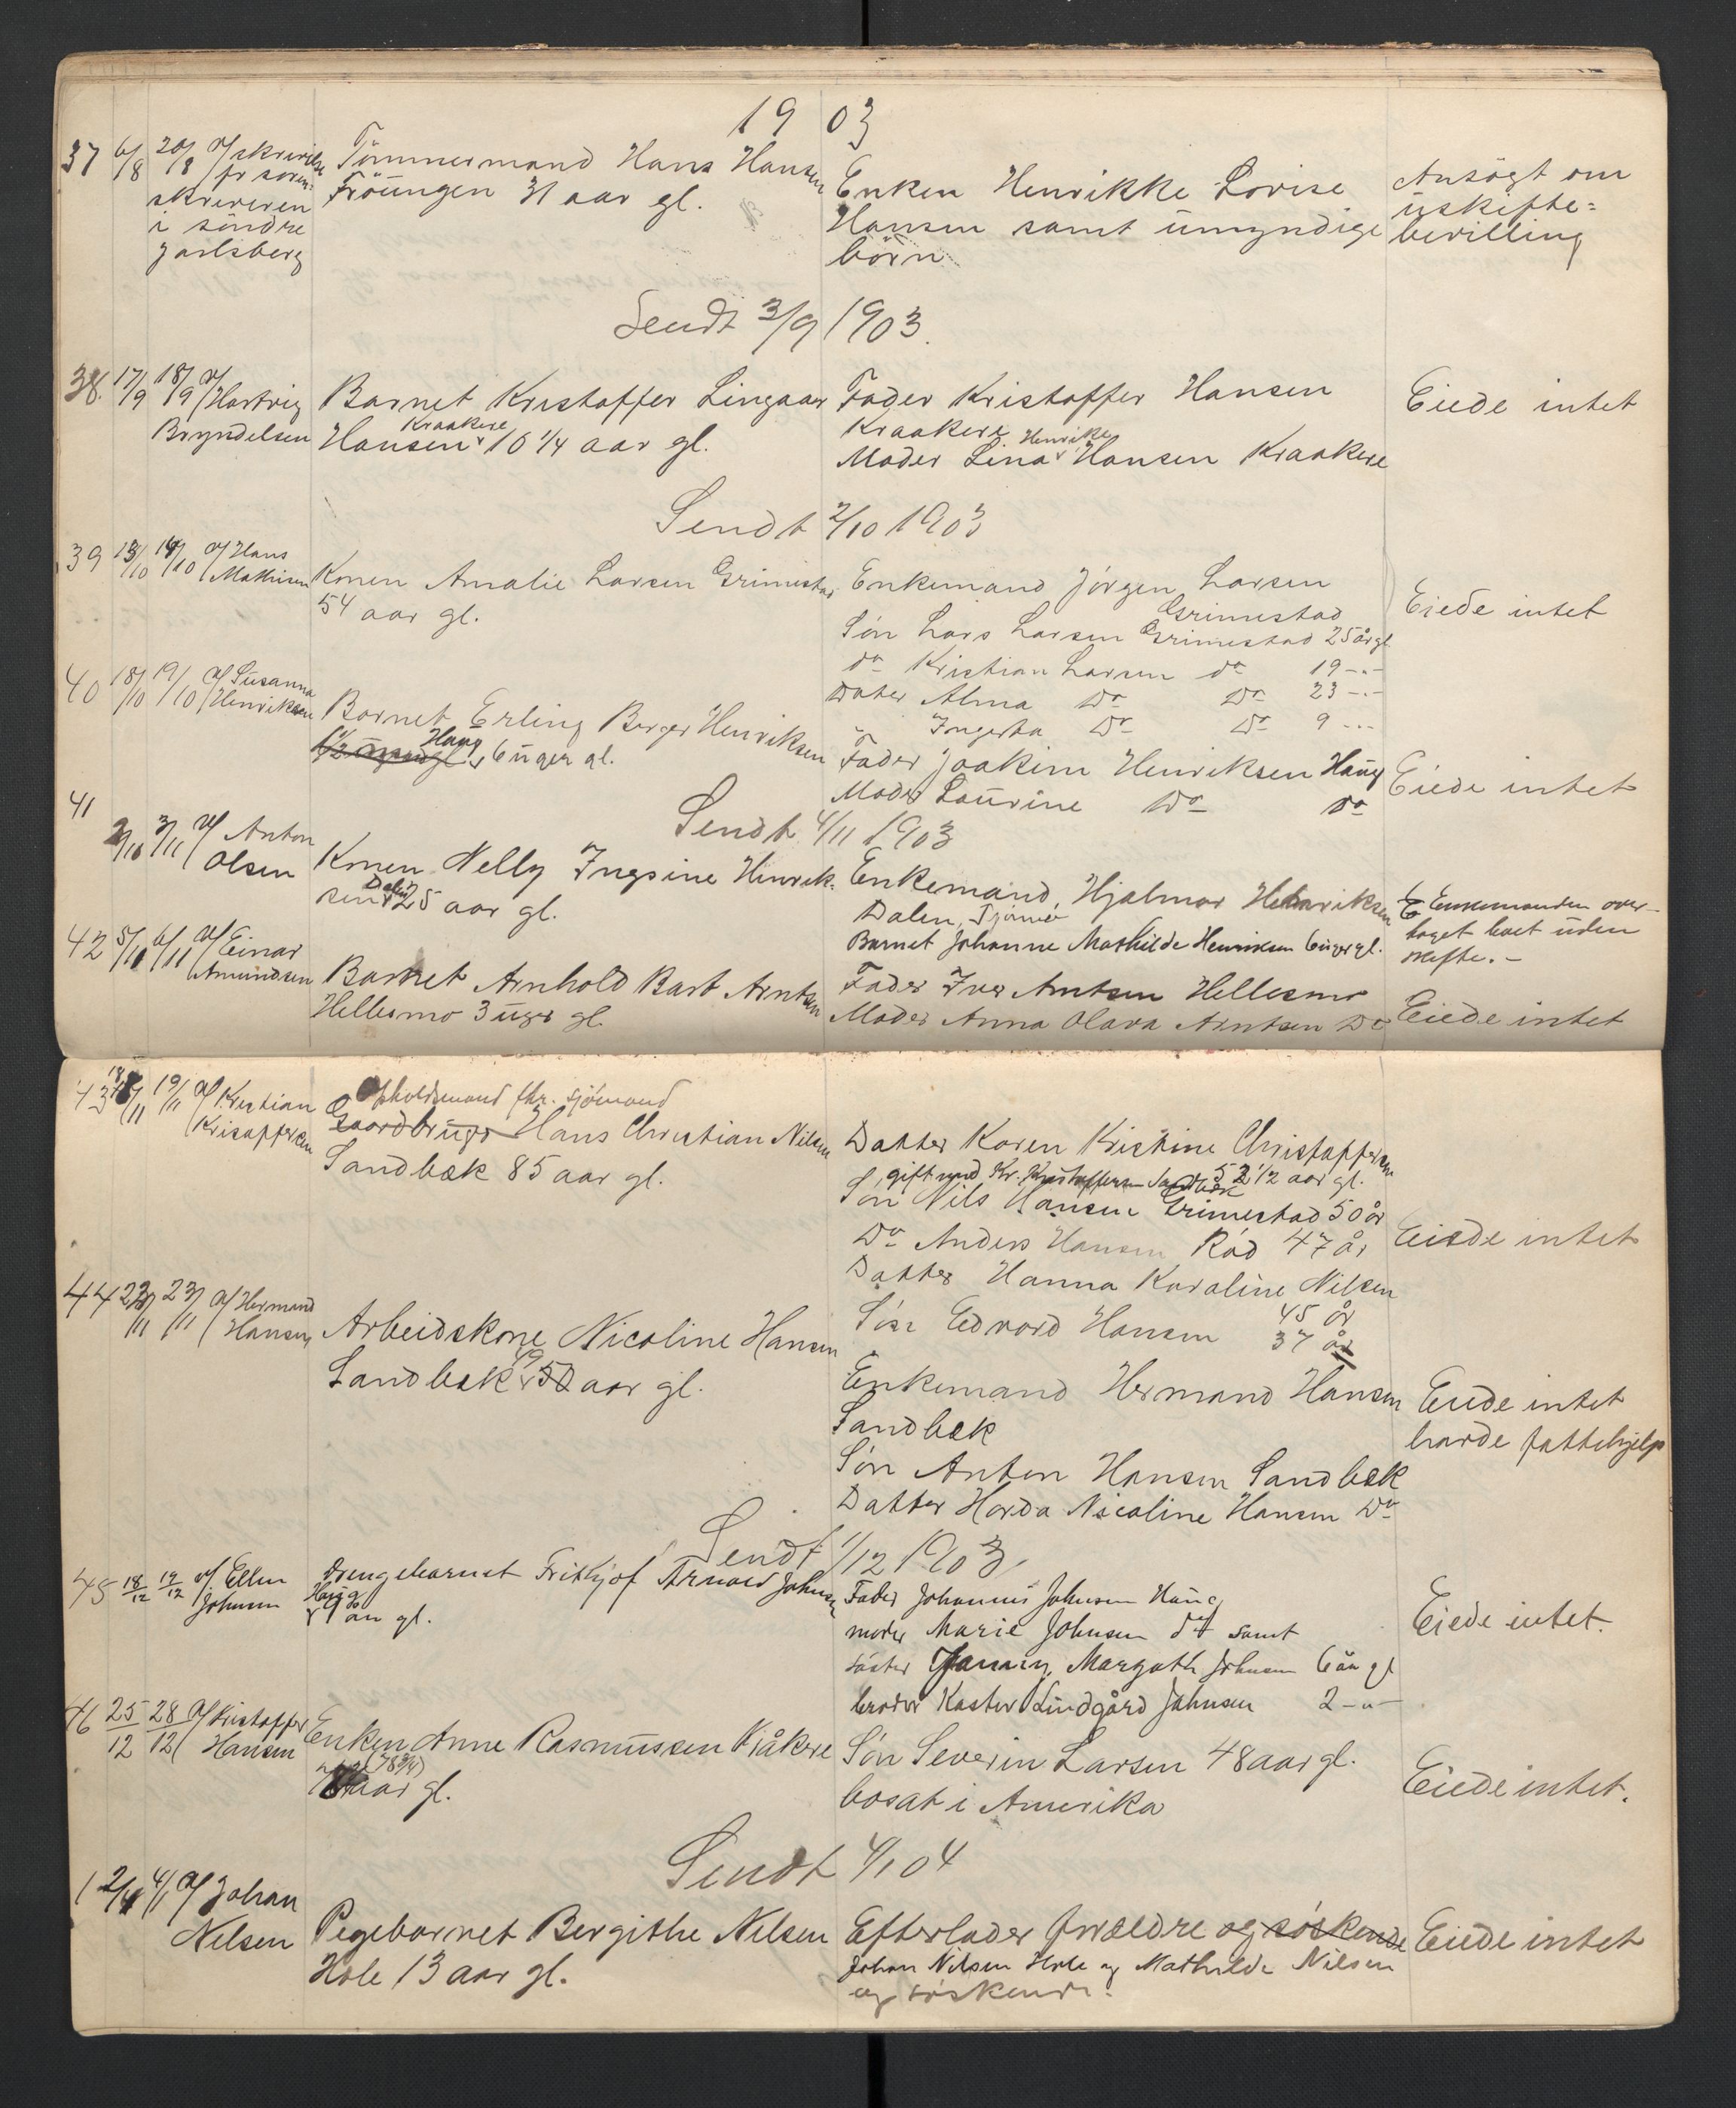 1903
37 6/8 20/8 af skrivelse Tømmermand Hans Hansen
fr soren- Fröüngen 31 aar gl.
skriveren
i söndre
Jarlsberg
Enken Henrikke Lovise
Hansen samt ümyndige
börn
Ansögt om
üskifte=
bevilling
Sendt 3/9 1903.
38. 17/9 18/9 af Hartvig
Bryndelsen
Barnet Kristoffer Lingaar
Kraakere
Hansen 10 1/4 aar gl.
Fader Kristoffer Hansen
Kraakere Henrike
Moder Lina Hansen Kraakere
Eiede intet
Sendt 2/10 1903
39 13/10 14/10 af Hans
Mathisen
Konen Amalie Larsen Grimestad
54 aar gl.
Enkemand Jörgen Larsen
Grimestad
Sön Lars Larsen Grimestad 25 år gl
do Kristian Larsen do 19 -"-
Dater Alma Do Do 23 -"-
Ingerha Do Do 9 -"-
Eiede intet
40 18/10 19/10 af Susanna
Henriksen
Barnet Erling Berger Henriksen
Haug
6 üger gl.
Fader Joakim Henriksen Haüg
Moder Laürine Do Do
Eiede intet
Sendt 4/11 1903
41
2/10 3/11 af Anton
Olsen
Konen Nelly Ingsine Henrik-
sen Dalen 25 aar gl.
Enkemand Hjalmar Henriksen
Dalen, Tjømø
Barnet Johanne Mathilde Henriksen 6 üger gl.
Enkemanden over-
taget boet üden
skifte. -
42 5/11 6/11 af Einar
Amundsen
Barnet Arnhold Bart Arntsen
Hellesmo 3 üger gl.
Fader Iver Arntsen Hellesmo
Moder Anna Olava Arntsen Do
Eiede intet
43 18/11 19/11 af Kristian
Kristoffersen
Opholdsmand fhr. sjömand
Gaardbrüger Hans Christian Nilsen
Sandbæk 85 aar gl.
Datter Karen Kristine Christoffersen
gift med Kr. Kristoffersen Sandbæk 52 1/2 aar gl.
Sön Nils Hansen Grimestad 50 år
Do Anders Hansen Röd 47 år
Datter Hanna Karoline Nilsen
45 år
Sön Edvard Hansen 37 år
Eiede intet
44 22/11 23/11 af Hermand
Hansen
Arbeidskone Nicoline Hansen
49
Sandbæk 50 aar gl.
Enkemand Hermand Hansen
Sandbæk
Sön Anton Hansen Sandbæk
Datter Harda Nicoline Hansen Do
Eiede intet
havde fattehjelp
Sendt 1/12 1903
45 18/12 19/12 af Ellen
Johnsen
Drengebarnet Frithjof Arnold Johnsen
Haug
1 år gl.
Fader Johannes Johnsen Haüg
moder Marie Johnsen do samt
söster Fanny Margoth Johnsen 6 år gl
broder Kastor Lindgård Johnsen 2 -"-
Eiede intet.
46 25/12 28/12 af Kristoffer
Hansen
Enken Anne Rasmüssen Kråkere
(78 3/4)
aar gl.
Sön Severin Larsen 48 aar gl.
bosat i Amerika
Eiede intet.
Sendt 4/1 04
1 2/1 4/1 af Johan
Nilsen
Pegebarnet Bergithe Nilsen
Hole 13 aar gl.
Efterlader forældre og söskende
Johan Nilsen Hole og Mathilde Nilsen
og söskende.
Eiede intet